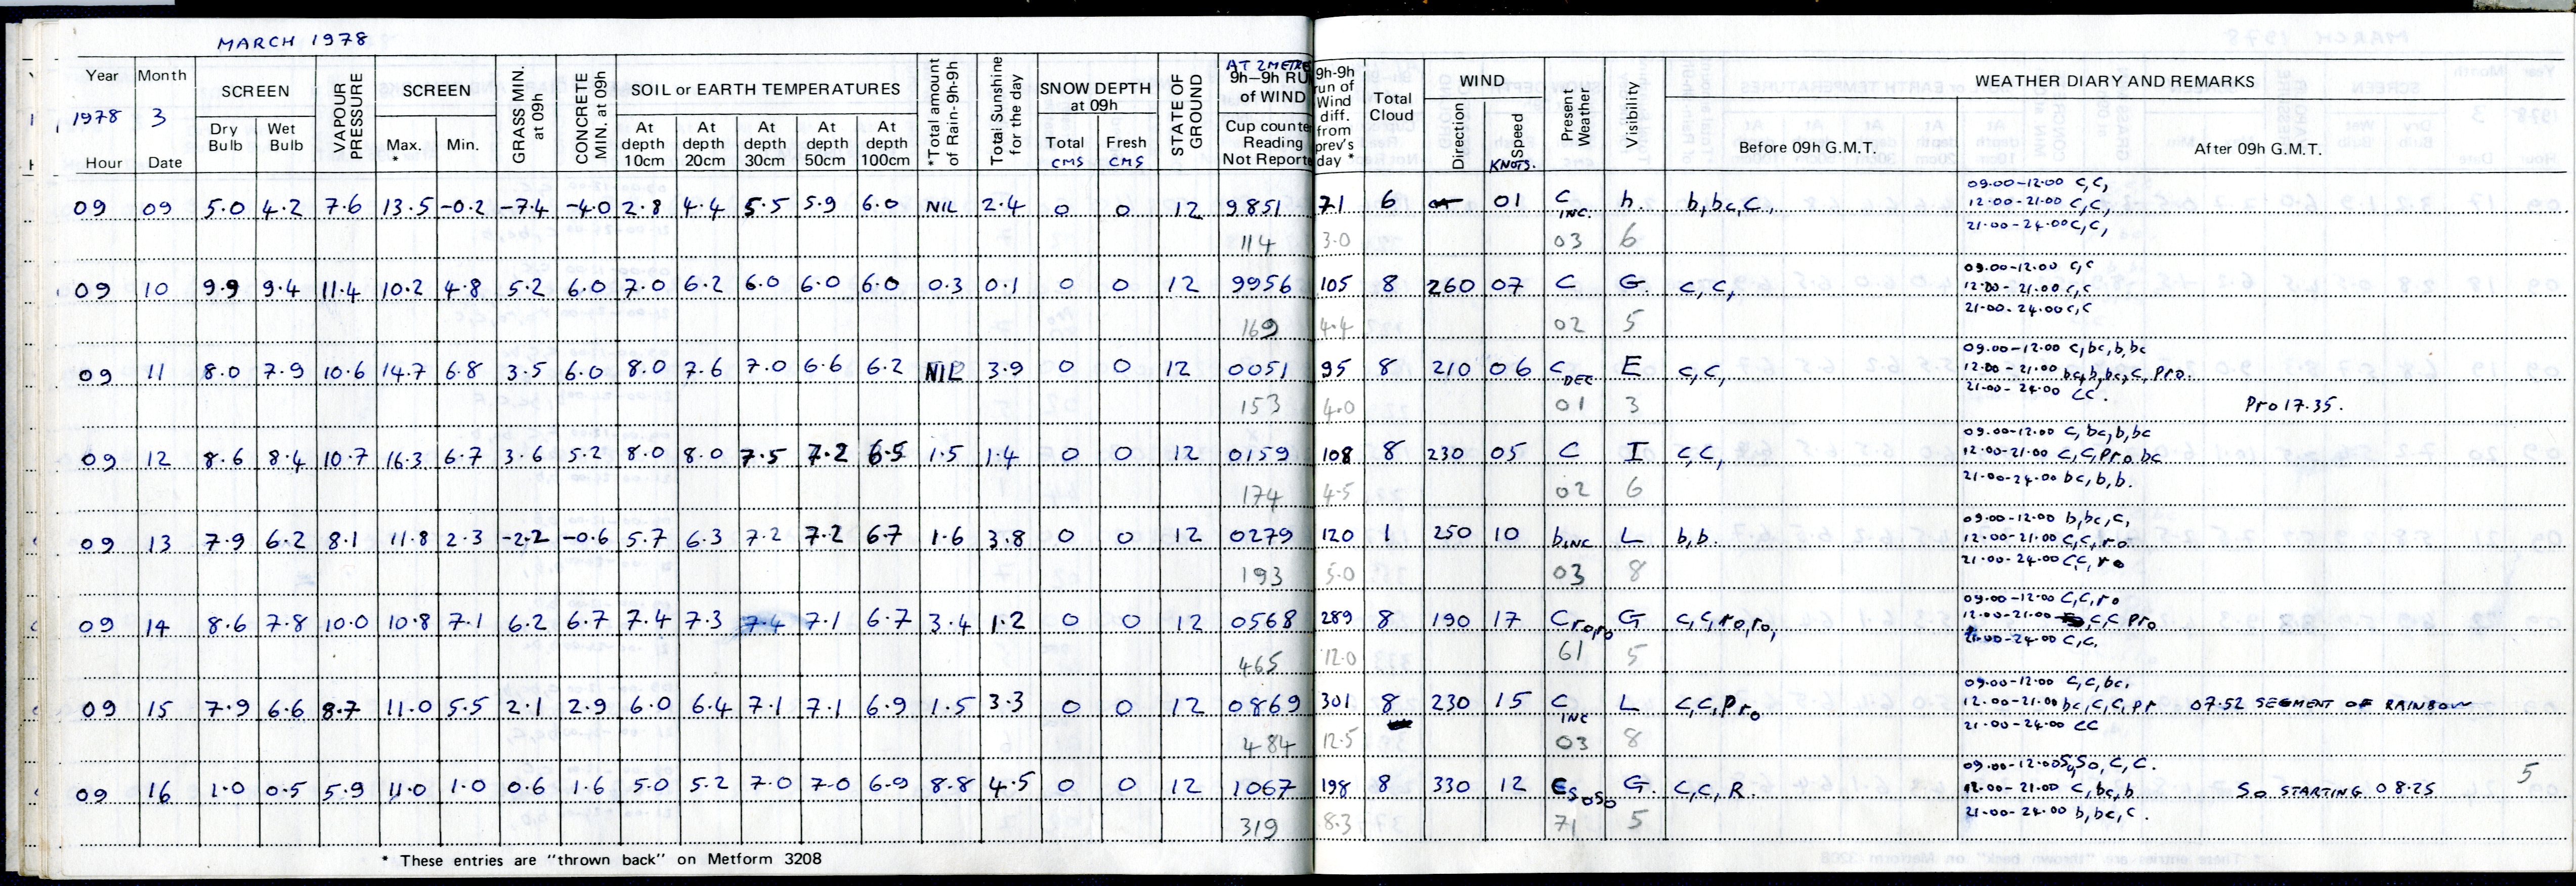 MARCH 1978
Year Month SCREEN VAPOUR PRESSURE SCREEN GRASS MIN. at 09h CONCRETE MIN. at 09h SOIL or EARTH TEMPERATURES *Total amount of Rain-9h-9h Total Sunshine for the day SNOW DEPTH at 09h STATE OF GROUND AT 2 METRE 9h–9h RU of WIND 9h-9h run of Wind diff. from prev's day * Total Cloud WIND Present Weather Visibility WEATHER DIARY AND REMARKS
1978 3
Hour Date Dry Bulb Wet Bulb Max. * Min. At depth 10cm At depth 20cm At depth 30cm At depth 50cm At depth 100cm Total CMS Fresh CMS Cup counte Reading Not Reporte Direction Speed KNOTS. Before 09h G.M.T. After 09h G.M.T.
09 09 5.0 4.2 7.6 13.5 -0.2 -7.4 -4.0 2.8 4.4 5.5 5.9 6.0 NIL 2.4 0 0 12 9851 71 6 01 C INC. h. b,bc,C, 09.00-12.00 C,C,
12.00-21.00 C,C,
21.00-24.00 C,C,
114 3.0 03 6
09 10 9.9 9.4 11.4 10.2 4.8 5.2 6.0 7.0 6.2 6.0 6.0 6.0 0.3 0.1 0 0 12 9956 105 8 260 07 C G. C,C, 09.00-12.00 C,C
12.00-21.00 C,C
21.00-24.00 C,C
169 4.4 02 5
09 11 8.0 7.9 10.6 14.7 6.8 3.5 6.0 8.0 7.6 7.0 6.6 6.2 NIL 3.9 0 0 12 0051 95 8 210 06 C DEC E C,C, 09.00-12.00 C,bc,b,bc
12.00-21.00 bc,b,bc,C,Pro.
21.00-24.00 CC.
153 4.0 01 3 Pro 17.35.
09 12 8.6 8.4 10.7 16.3 6.7 3.6 5.2 8.0 8.0 7.5 7.2 6.5 1.5 1.4 0 0 12 0159 108 8 230 05 C I C,C, 09.00-12.00 C,bc,b,bc
12.00-21.00 C,C,Pro bc
21.00-24.00 bc,b,b.
174 4.5 02 6
09 13 7.9 6.2 8.1 11.8 2.3 -2.2 -0.6 5.7 6.3 7.2 7.2 6.7 1.6 3.8 0 0 12 0279 120 1 250 10 b INC L b,b. 09.00-12.00 b,bc,C,
12.00-21.00 C,C,ro
21.00-24.00 CC,ro
193 5.0 03 8
09 14 8.6 7.8 10.0 10.8 7.1 6.2 6.7 7.4 7.3 7.4 7.1 6.7 3.4 1.2 0 0 12 0568 289 8 190 17 Croro G C,C,ro,ro, 09.00-12.00 C,C,ro
12.00-21.00 C,C Pro
21.00-24.00 C,C,
465 12.0 61 5
09 15 7.9 6.6 8.7 11.0 5.5 2.1 2.9 6.0 6.4 7.1 7.1 6.9 1.5 3.3 0 0 12 0869 301 8 230 15 C INC L C,C,Pro 09.00-12.00 C,C,bc,
12.00-21.00 bc,C,C,Pr 07.52 SEGMENT OF RAINBOW
21.00-24.00 CC
484 12.5 03 8
09 16 1.0 0.5 5.9 11.0 1.0 0.6 1.6 5.0 5.2 7.0 7.0 6.9 8.8 4.5 0 0 12 1067 198 8 330 12 CSoSo G. C,C,R. 09.00-12.00 So,So,C,C.
12.00-21.00 C,bc,b So STARTING 08.25 5
21.00-24.00 b,bc,C.
319 8.3 71 5
* These entries are "thrown back" on Metform 3208